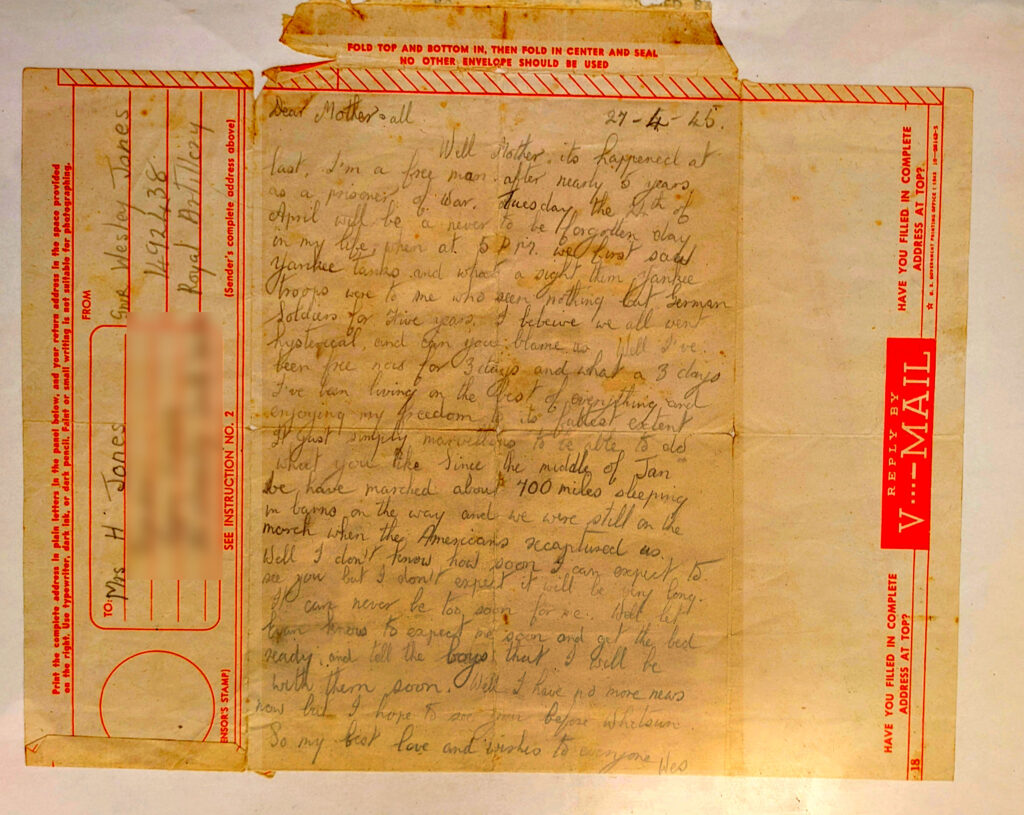 FOLD TOP AND BOTTOM IN, THEN FOLD IN CENTER AND SEAL
NO OTHER ENVELOPE SHOULD BE USED
Print the complete address in plain letters in the panel below, and your return address in the space provided
on the right. Use typewriter, dark ink, or dark pencil. Faint or small writing is not suitable for photographing.
FROM
Gnr Wesley Jones
1492438
Royal Artillery
(Sender's complete address above)
TO:
Mrs H Jones
SEE INSTRUCTION NO. 2
ENSOR'S STAMP)
Dear Mother & all
27-4-45.
Well Mother, its happened at
last, I'm a free man after nearly 5 years
as a prisoner of War. Tuesday the 24th of
April will be a never to be forgotten day
in my life, when at 5 P.m. we first saw
Yankee tanks and what a sight them Yankee
troops were to me who seen nothing but German
Soldiers for Five years. I beleive we all went
hysterical, and can you blame us. Well I've
been free now for 3 days and what a 3 days
I've been living on the best of everything and
enjoying my freedom to its fullest extent
It just simply marvellous to be able to do
what you like Since the middle of Jan
we have marched about 700 miles sleeping
in barns on the way and we were still on the
march when the Americans recaptured us.
Well I don't know how soon I can expect to
see you but I don't expect it will be very long.
It can never be too soon for me. Well let
know to expect me soon and get the bed
ready, and tell the boys that I will be
with them soon. Well I have no more news
now but I hope to see you before whitsun
So my best love and wishes to everyone Wes
HAVE YOU FILLED IN COMPLETE
ADDRESS AT TOP?
REPLY BY
V···—MAIL
HAVE YOU FILLED IN COMPLETE
ADDRESS AT TOP?
U. S. GOVERNMENT PRINTING OFFICE
18